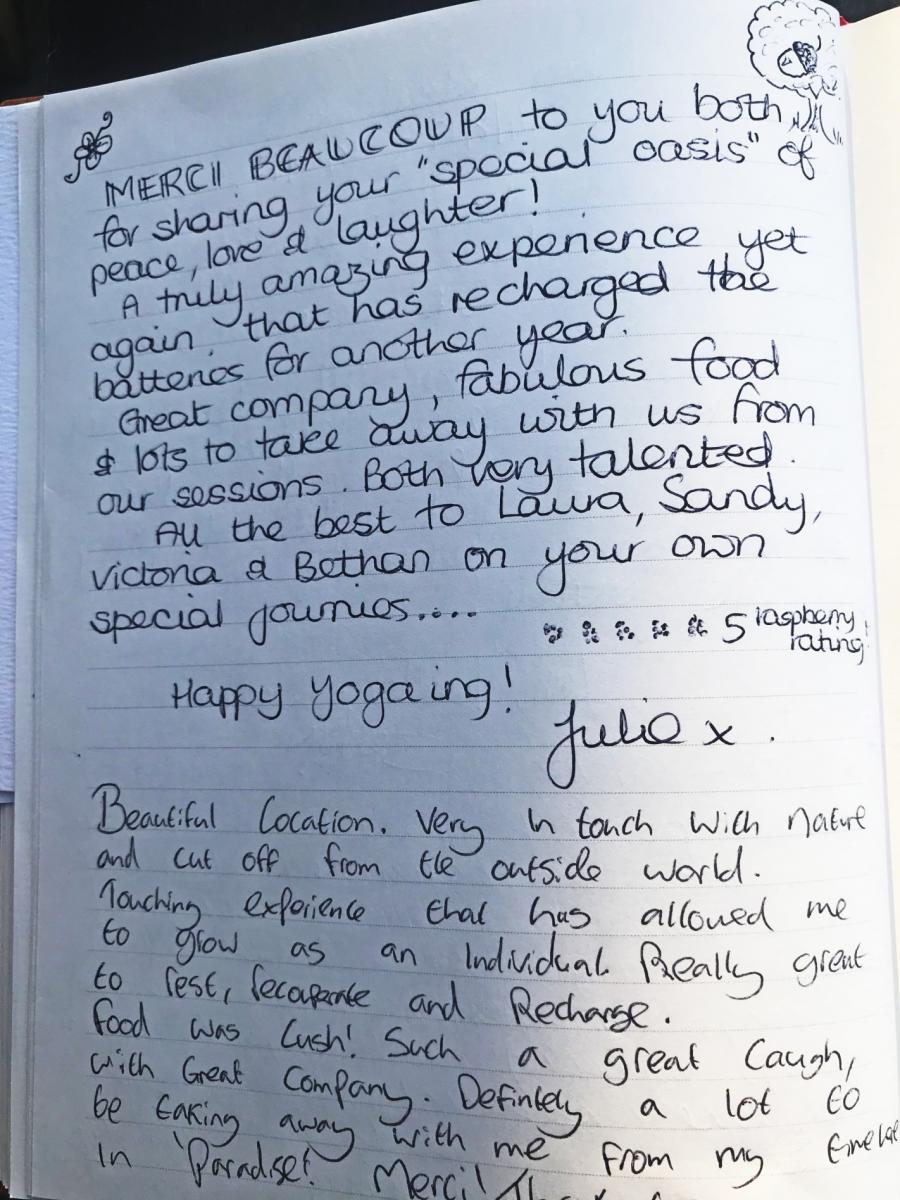 MERCI BEAUCOUP to you both
for sharing your "special oasis" of
peace, love & laughter!
A truly amazing experience yet
again, that has recharged the
batteries for another year.
Great company, fabulous food
& lots to take away with us from
our sessions. Both very talented.
All the best to Laura, Sandy,
Victoria & Bethan on your own
special journies....
5 raspberry
rating!
Happy Yogaing!
Julie x.
Beautiful Location. Very In touch with nature
and cut off from the outside world.
Touching experience that has allowed me
to grow as an Individual. Really great
to rest, recouperate and Recharge.
food was Lush! Such a great Laugh,
with Great Company. Defintely a lot to
be taking away with me from my
In 'Paradise'! Merci!